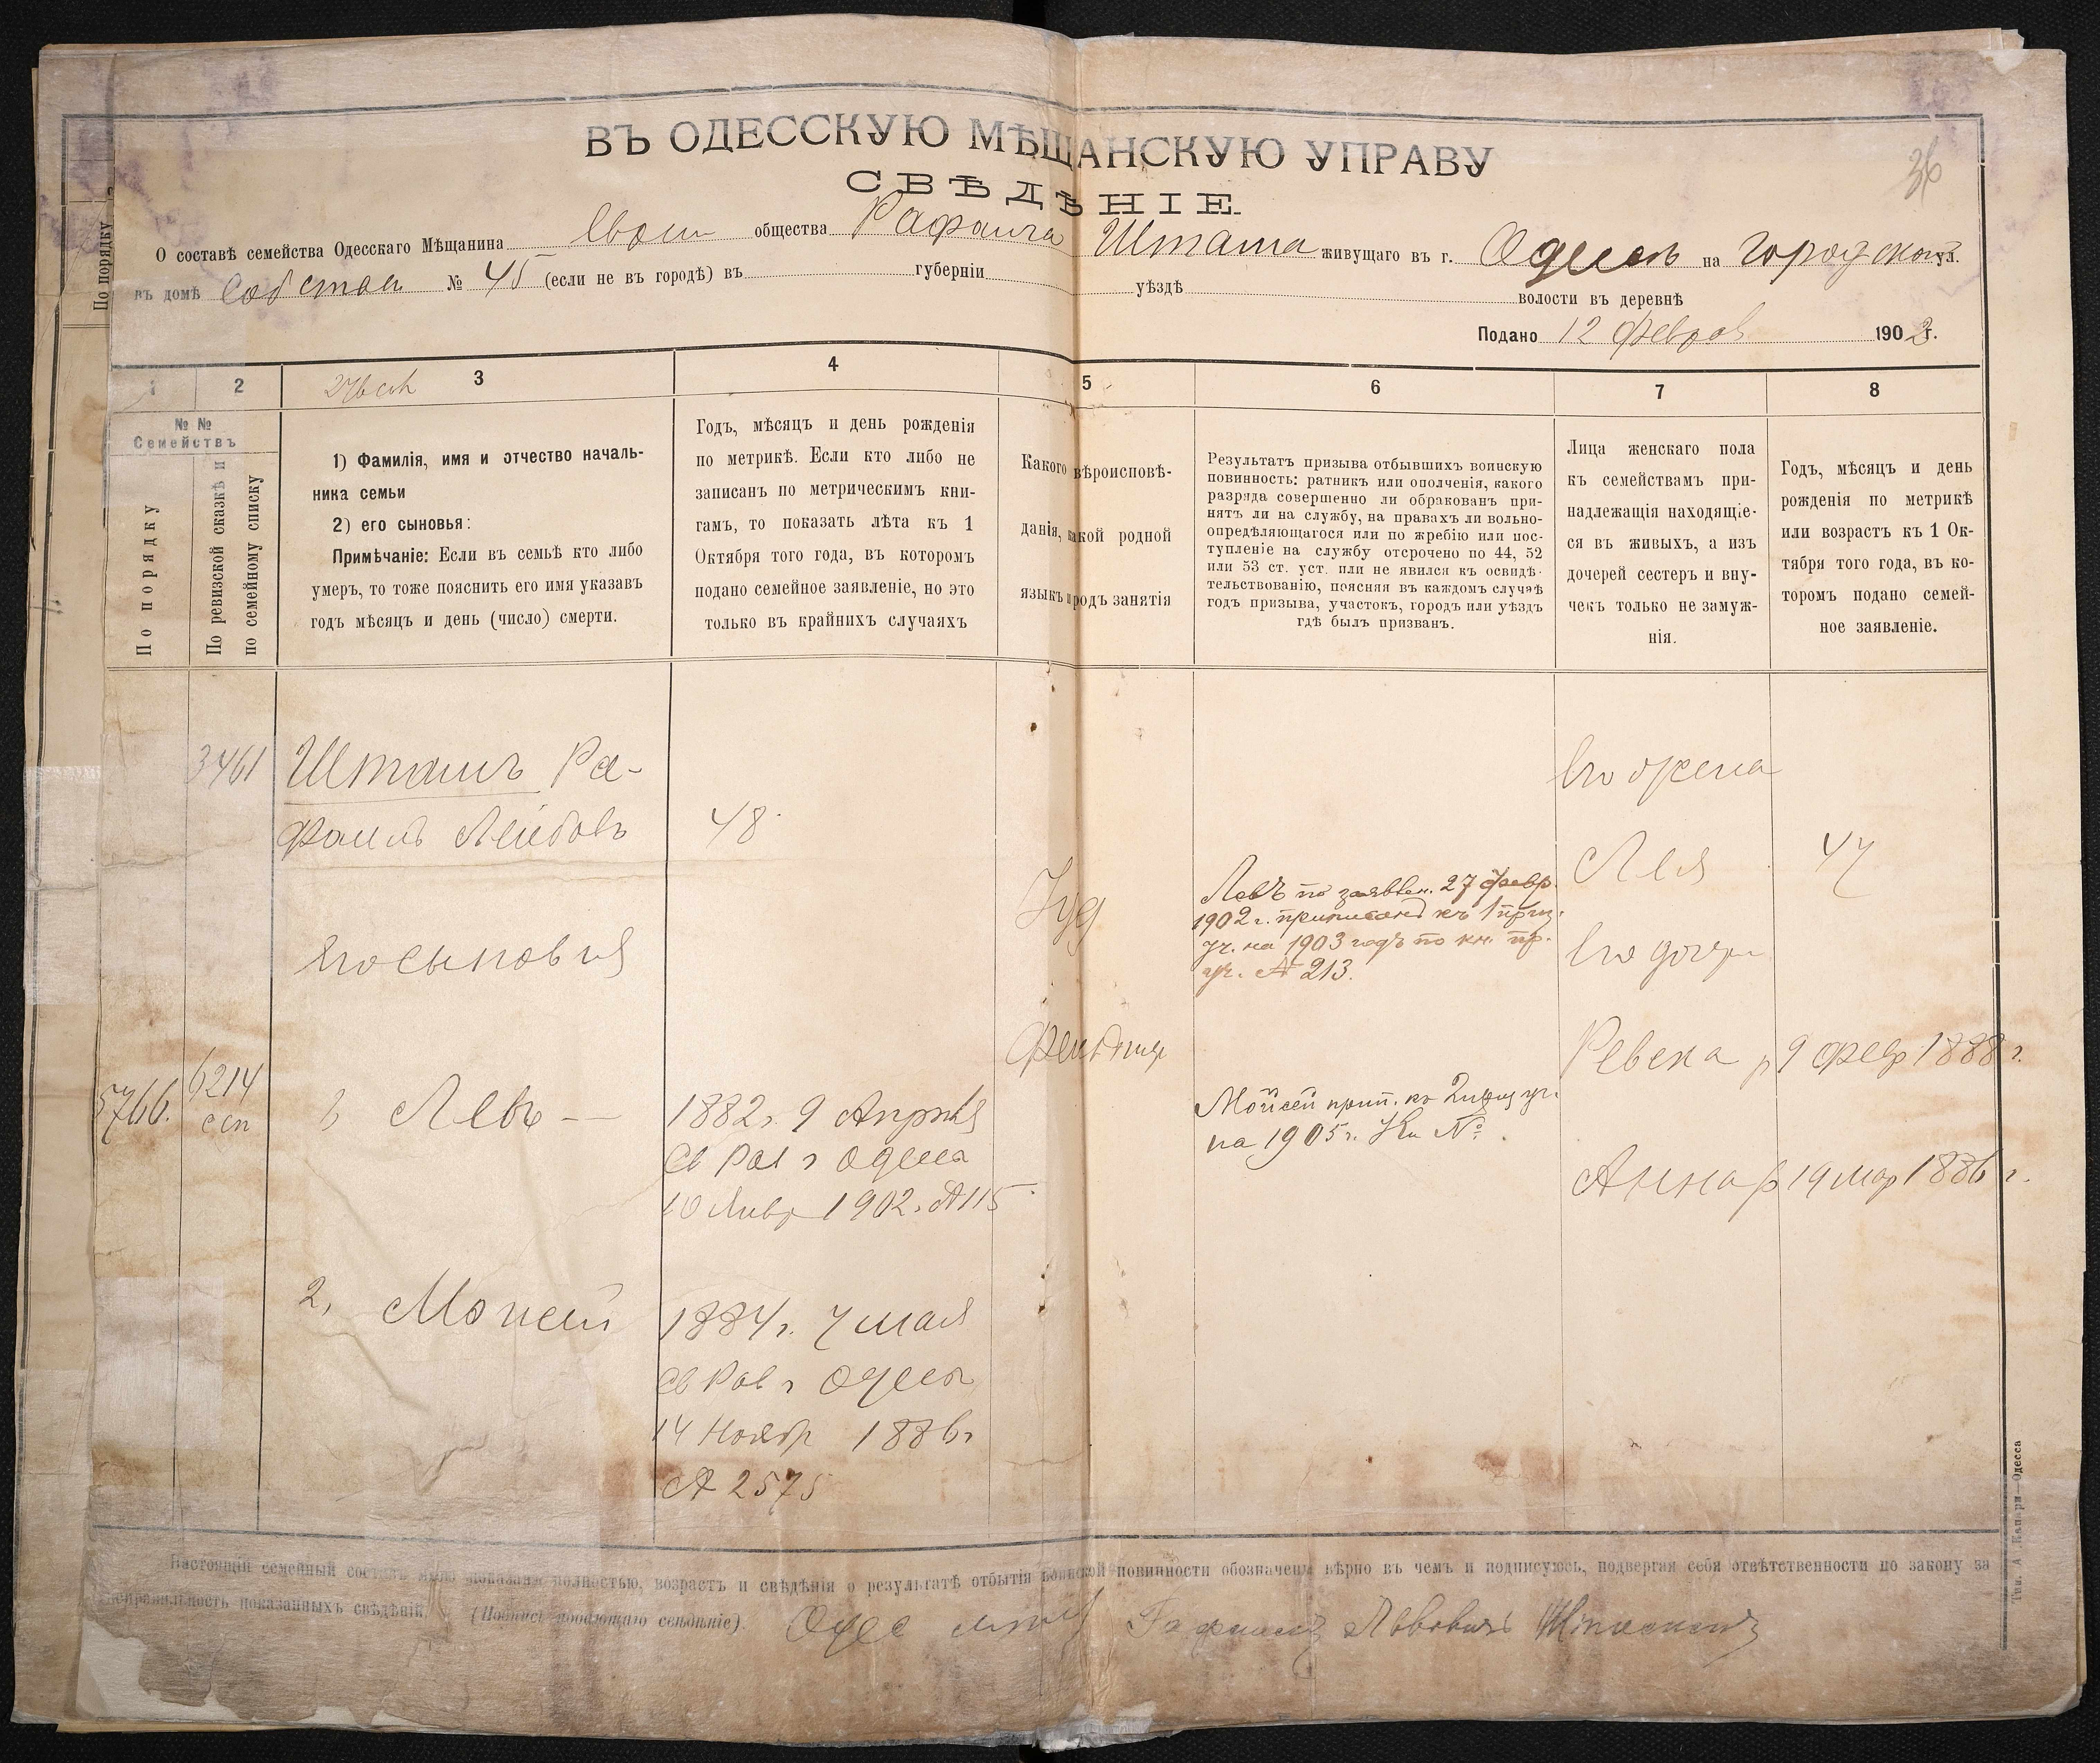 36
ВЪ ОДЕССКУЮ МѢЩАНСКУЮ УПРАВУ
СВѢДѢНІЕ.
О составѣ семейства Одесскаго Мѣщанина общества Рафаила живущаго въ г. на ул.
въ домѣ № 45 (если не въ городѣ) въ губерніи уѣздѣ волости въ деревнѣ
Подано 12 190 г.
По порядку
1 2 3 4 5 6 7 8
№ №
Семействъ
По порядку
По ревизской сказкѣ и
по семейному списку
1) Фамилія, имя и отчество началь-
ника семьи
2) его сыновья:
Примѣчаніе: Если въ семьѣ кто либо
умеръ, то тоже пояснить его имя указавъ
годъ мѣсяцъ и день (число) смерти.
Годъ, мѣсяцъ и день рожденія
по метрикѣ. Если кто либо не
записанъ по метрическимъ кни-
гамъ, то показать лѣта къ 1
Октября того года, въ которомъ
подано семейное заявленіе, но это
только въ крайнихъ случаяхъ
Какого вѣроисповѣ-
данія, какой родной
языкъ и родъ занятія
Результатъ призыва отбывшихъ воинскую
повинность: ратникъ или ополченія, какого
разряда совершенно ли обракованъ при-
нятъ ли на службу, на правахъ ли вольно-
опредѣляющагося или по жребію или пос-
тупленіе на службу отсрочено по 44, 52
или 53 ст. уст. или не явился къ освидѣ-
тельствованію, поясняя въ каждомъ случаѣ
годъ призыва, участокъ, городъ или уѣздъ
гдѣ былъ призванъ.
Лица женскаго пола
къ семействамъ при-
надлежащія находящіе-
ся въ живыхъ, а изъ
дочерей сестеръ и вну-
чекъ только не замуж-
нія.
Годъ, мѣсяцъ и день
рожденія по метрикѣ
или возрастъ къ 1 Ок-
тября того года, въ ко-
торомъ подано семей-
ное заявленіе.
3461 Ра-
фаилъ Лейбовъ 48
Его жена
Лея 47
Іуд
Левъ по заявлен. 27 февр.
1902 г. приписанъ къ 1 приз.
уч. на 1903 годъ по кн. пр.
уч. № 213.
Его сыновья
Его дочери
Ревека р 9 февр 1888 г.
5766. 6214
Левъ — 1882 г. 9 Апрѣля
Св Рав г Одесса
10 Январ 1902 г. № 115
Мойсей прип. къ 2 призуч.
на 1905 г. Кн №
Анна р 19 мар 1886 г.
2, Мойсей 1884 г. 7 мая
Св Рав г Одессы
14 Ноябр 1886 г
№ 2575
Настоящій семейный составъ мною показанъ полностью, возрастъ и свѣдѣнія о результатѣ отбытія воинской повинности обозначены вѣрно въ чемъ и подписуюсь, подвергая себя отвѣтственности по закону за
неправильность показанныхъ свѣдѣній. (Подпись подающаго свѣдѣніе).
Тип. А. Одесса